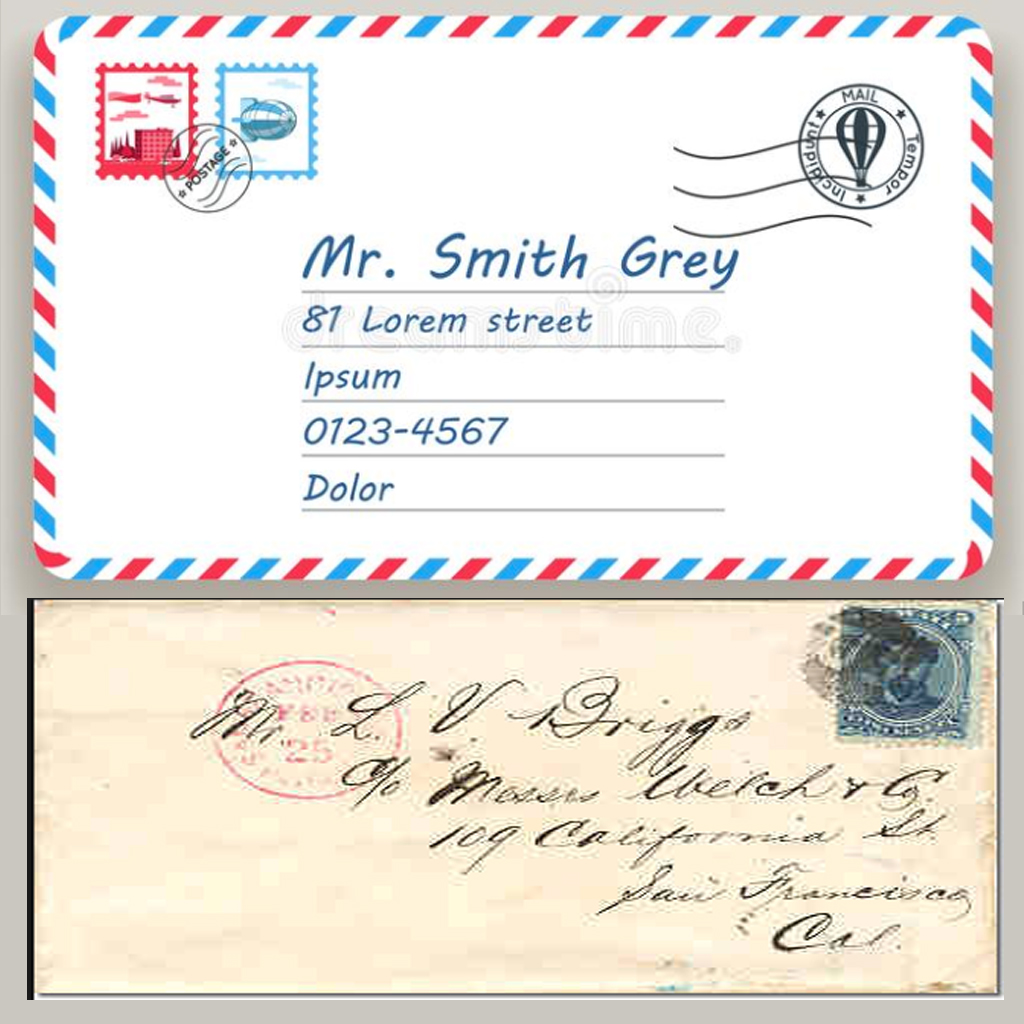 POSTAGE
MAIL
Tempor
Incididunt
Mr. Smith Grey
81 Lorem street
Ipsum
0123-4567
Dolor
dreamstime.
Mr. L. V. Briggs
25
c/o Messrs Welch & Co.
109 California St.
San Francisco
Cal.